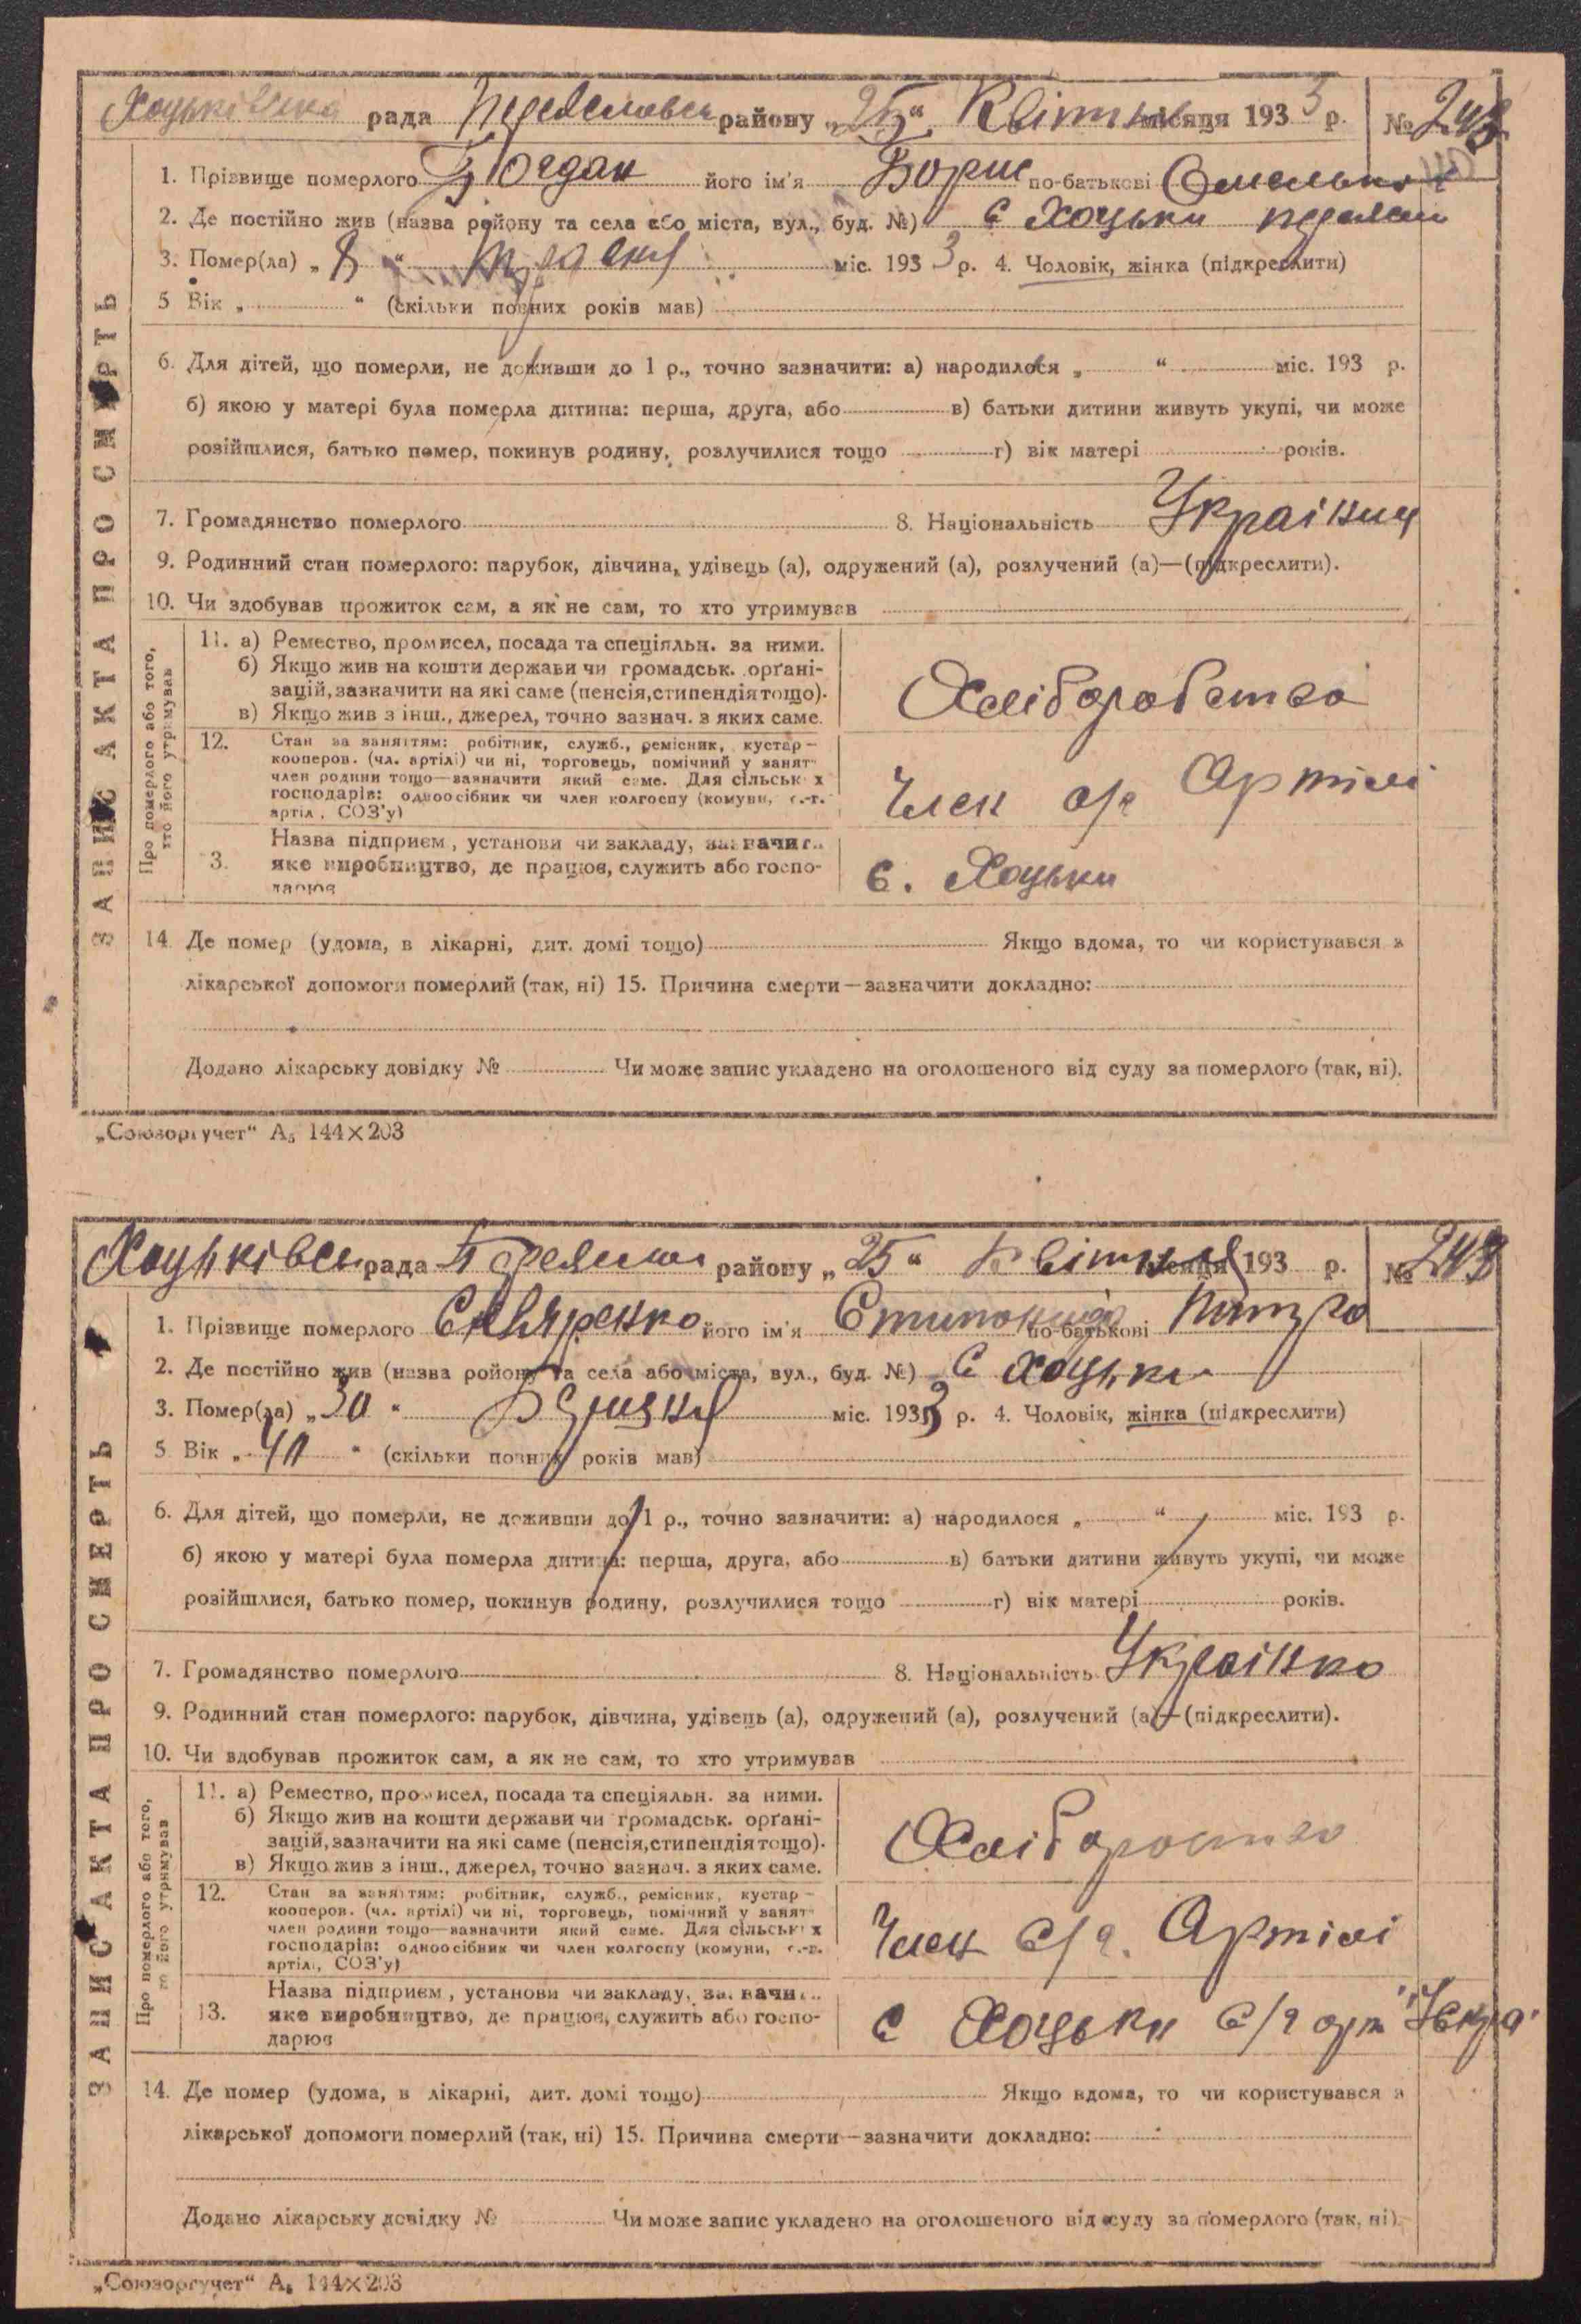 Хоцьківська рада Переяславськ району „25“ Квітня місяця 1933 р. № 242
1. Прізвище померлого Богдан його ім'я Борис по-батькові Омелько
2. Де постійно жив (назва району та села або міста, вул., буд. №) С Хоцьки
3. Помер(ла) „8“ травня міс. 1933 р. 4. Чоловік, жінка (підкреслити)
5 Вік „ “ (скільки повних років мав)
6. Для дітей, що померли, не доживши до 1 р., точно зазначити: а) народилося „ “ міс. 193 р.
б) якою у матері була померла дитина: перша, друга, або в) батьки дитини живуть укупі, чи може
розійшлися, батько помер, покинув родину, розлучилися тощо г) вік матері років.
7. Громадянство померлого 8. Національність Українц
9. Родинний стан померлого: парубок, дівчина, удівець (а), одружений (а), розлучений (а)—(підкреслити).
10. Чи здобував прожиток сам, а як не сам, то хто утримував
ЗАПИС АКТА ПРО СМЕРТЬ
Про померлого або того,
хто його утримував
11. а) Ремество, промисел, посада та спеціяльн. за ними.
б) Якщо жив на кошти держави чи громадськ. орґані-
зацій, зазначити на які саме (пенсія, стипендія тощо).
в) Якщо жив з інш., джерел, точно зазнач. з яких саме.
Хліборобство
12. Стан за заняттям: робітник, служб., ремісник, кустар—
кооперов. (чл. артілі) чи ні, торговець, помічний у занят
член родини тощо—зазначити який саме. Для сільськ х
господарів: одноосібник чи член колгоспу (комуни, с.-г.
артіл., СОЗ'у)
Член с/г Артілі
3. Назва підприєм, установи чи закладу, зазначит.
яке виробництво, де працює, служить або госпо-
дарює
с. Хоцьки
14. Де помер (удома, в лікарні, дит. домі тощо) Якщо вдома, то чи користувався з
лікарської допомоги померлий (так, ні) 15. Причина смерти—зазначити докладно:
Додано лікарську довідку № Чи може запис укладено на оголошеного від суду за померлого (так, ні).
„Союзоргучет“ А5 144×203
Хоцьківськ рада району „25“ Квітня місяця 193 р. № 243
1. Прізвище померлого його ім'я по-батькові
2. Де постійно жив (назва району та села або міста, вул., буд. №) С Хоцьки
3. Помер(ла) „30“ міс. 1933 р. 4. Чоловік, жінка (підкреслити)
5 Вік „40“ (скільки повних років мав)
6. Для дітей, що померли, не доживши до 1 р., точно зазначити: а) народилося „ “ міс. 193 р.
б) якою у матері була померла дитина: перша, друга, або в) батьки дитини живуть укупі, чи може
розійшлися, батько помер, покинув родину, розлучилися тощо г) вік матері років.
7. Громадянство померлого 8. Національність Українко
9. Родинний стан померлого: парубок, дівчина, удівець (а), одружений (а), розлучений (а)—(підкреслити).
10. Чи здобував прожиток сам, а як не сам, то хто утримував
ЗАПИС АКТА ПРО СМЕРТЬ
Про померлого або того,
хто його утримував
11. а) Ремество, промисел, посада та спеціяльн. за ними.
б) Якщо жив на кошти держави чи громадськ. орґані-
зацій, зазначити на які саме (пенсія, стипендія тощо).
в) Якщо жив з інш., джерел, точно зазнач. з яких саме.
12. Стан за заняттям: робітник, служб., ремісник, кустар—
кооперов. (чл. артілі) чи ні, торговець, помічний у занят
член родини тощо—зазначити який саме. Для сільськ х
господарів: одноосібник чи член колгоспу (комуни, с.-г.
артіл., СОЗ'у)
Член С/г. Артілі
13. Назва підприєм, установи чи закладу, зазначи..
яке виробництво, де працює, служить або госпо-
дарює
с Хоцьки С/г арт "Іскра"
14. Де помер (удома, в лікарні, дит. домі тощо) Якщо вдома, то чи користувався з
лікарської допомоги померлий (так, ні) 15. Причина смерти—зазначити докладно:
Додано лікарську довідку № Чи може запис укладено на оголошеного від суду за померлого (так, ні).
„Союзоргучет“ А5 144×203